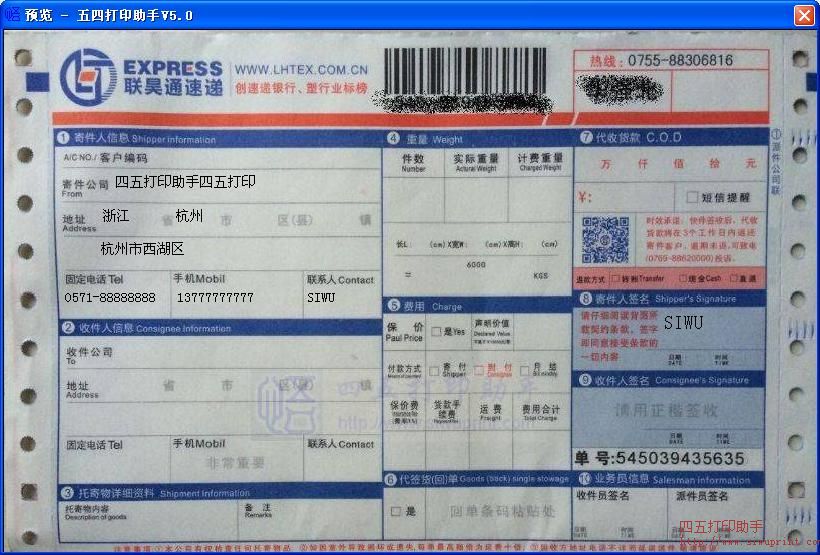 预览 - 五四打印助手V5.0
EXPRESS
联昊通速递
WWW.LHTEX.COM.CN
创速递银行、塑行业标榜
热线: 0755-88306816
① 寄件人信息 Shipper Information
A/C NO./ 客户编码
寄件公司 四五打印助手四五打印
From
地址 浙江 省 杭州 市 区(县) 镇
Address
杭州市西湖区
固定电话 Tel 手机 Mobil 联系人 Contact
0571-88888888 13777777777 SIWU
② 收件人信息 Consignee Information
收件公司
To
地址 省 市 区(县) 镇
Address
固定电话 Tel 手机 Mobil 联系人 Contact
非常重要
③ 托寄物详细资料 Shipment Information
托寄物内容 备 注
Description of goods Remarks
④ 重量 Weight
件数 实际重量 计费重量
Number Actural Weight Charged Weight
长L: (cm) X宽W: (cm) X高H: (cm)
6000
= KGS
⑤ 费用 Charge
保 价 □是Yes 声明价值
Paul Price Declared Value
付款方式 □寄 付 □到 付 □月 结
Shipper Consignee
保价费 货款手续费 运 费 费用合计
Freight Total Charge
⑥ 代签货(回)单 Goods (back) single stowage
□是 回单条码粘贴处
⑦ 代收货款 C.O.D
万 仟 佰 拾 元
¥: □短信提醒
时效承诺: 快件签收后, 代收
货款将在3个工作日内返还
寄件客户, 逾期未返, 可致电
(0769-88620000)投诉。
退款方式 □转账Transfer □现金Cash □直退
①派件公司联
⑧ 寄件人签名 Shipper's Signature
请仔细阅读背面所
载契约条款, 签字
即同意接受条款的
一切内容
SIWU
日期 时间
DATE TIME
⑨ 收件人签名 Consignee's Signature
请用正楷签收
日期 时间
DATE TIME
单号:545039435635
⑩ 业务员信息 Salesman information
收件员签名 派件员签名
日期 时间
DATE TIME
四五打印助手
http://www.siwuprint.co
四五打印助手